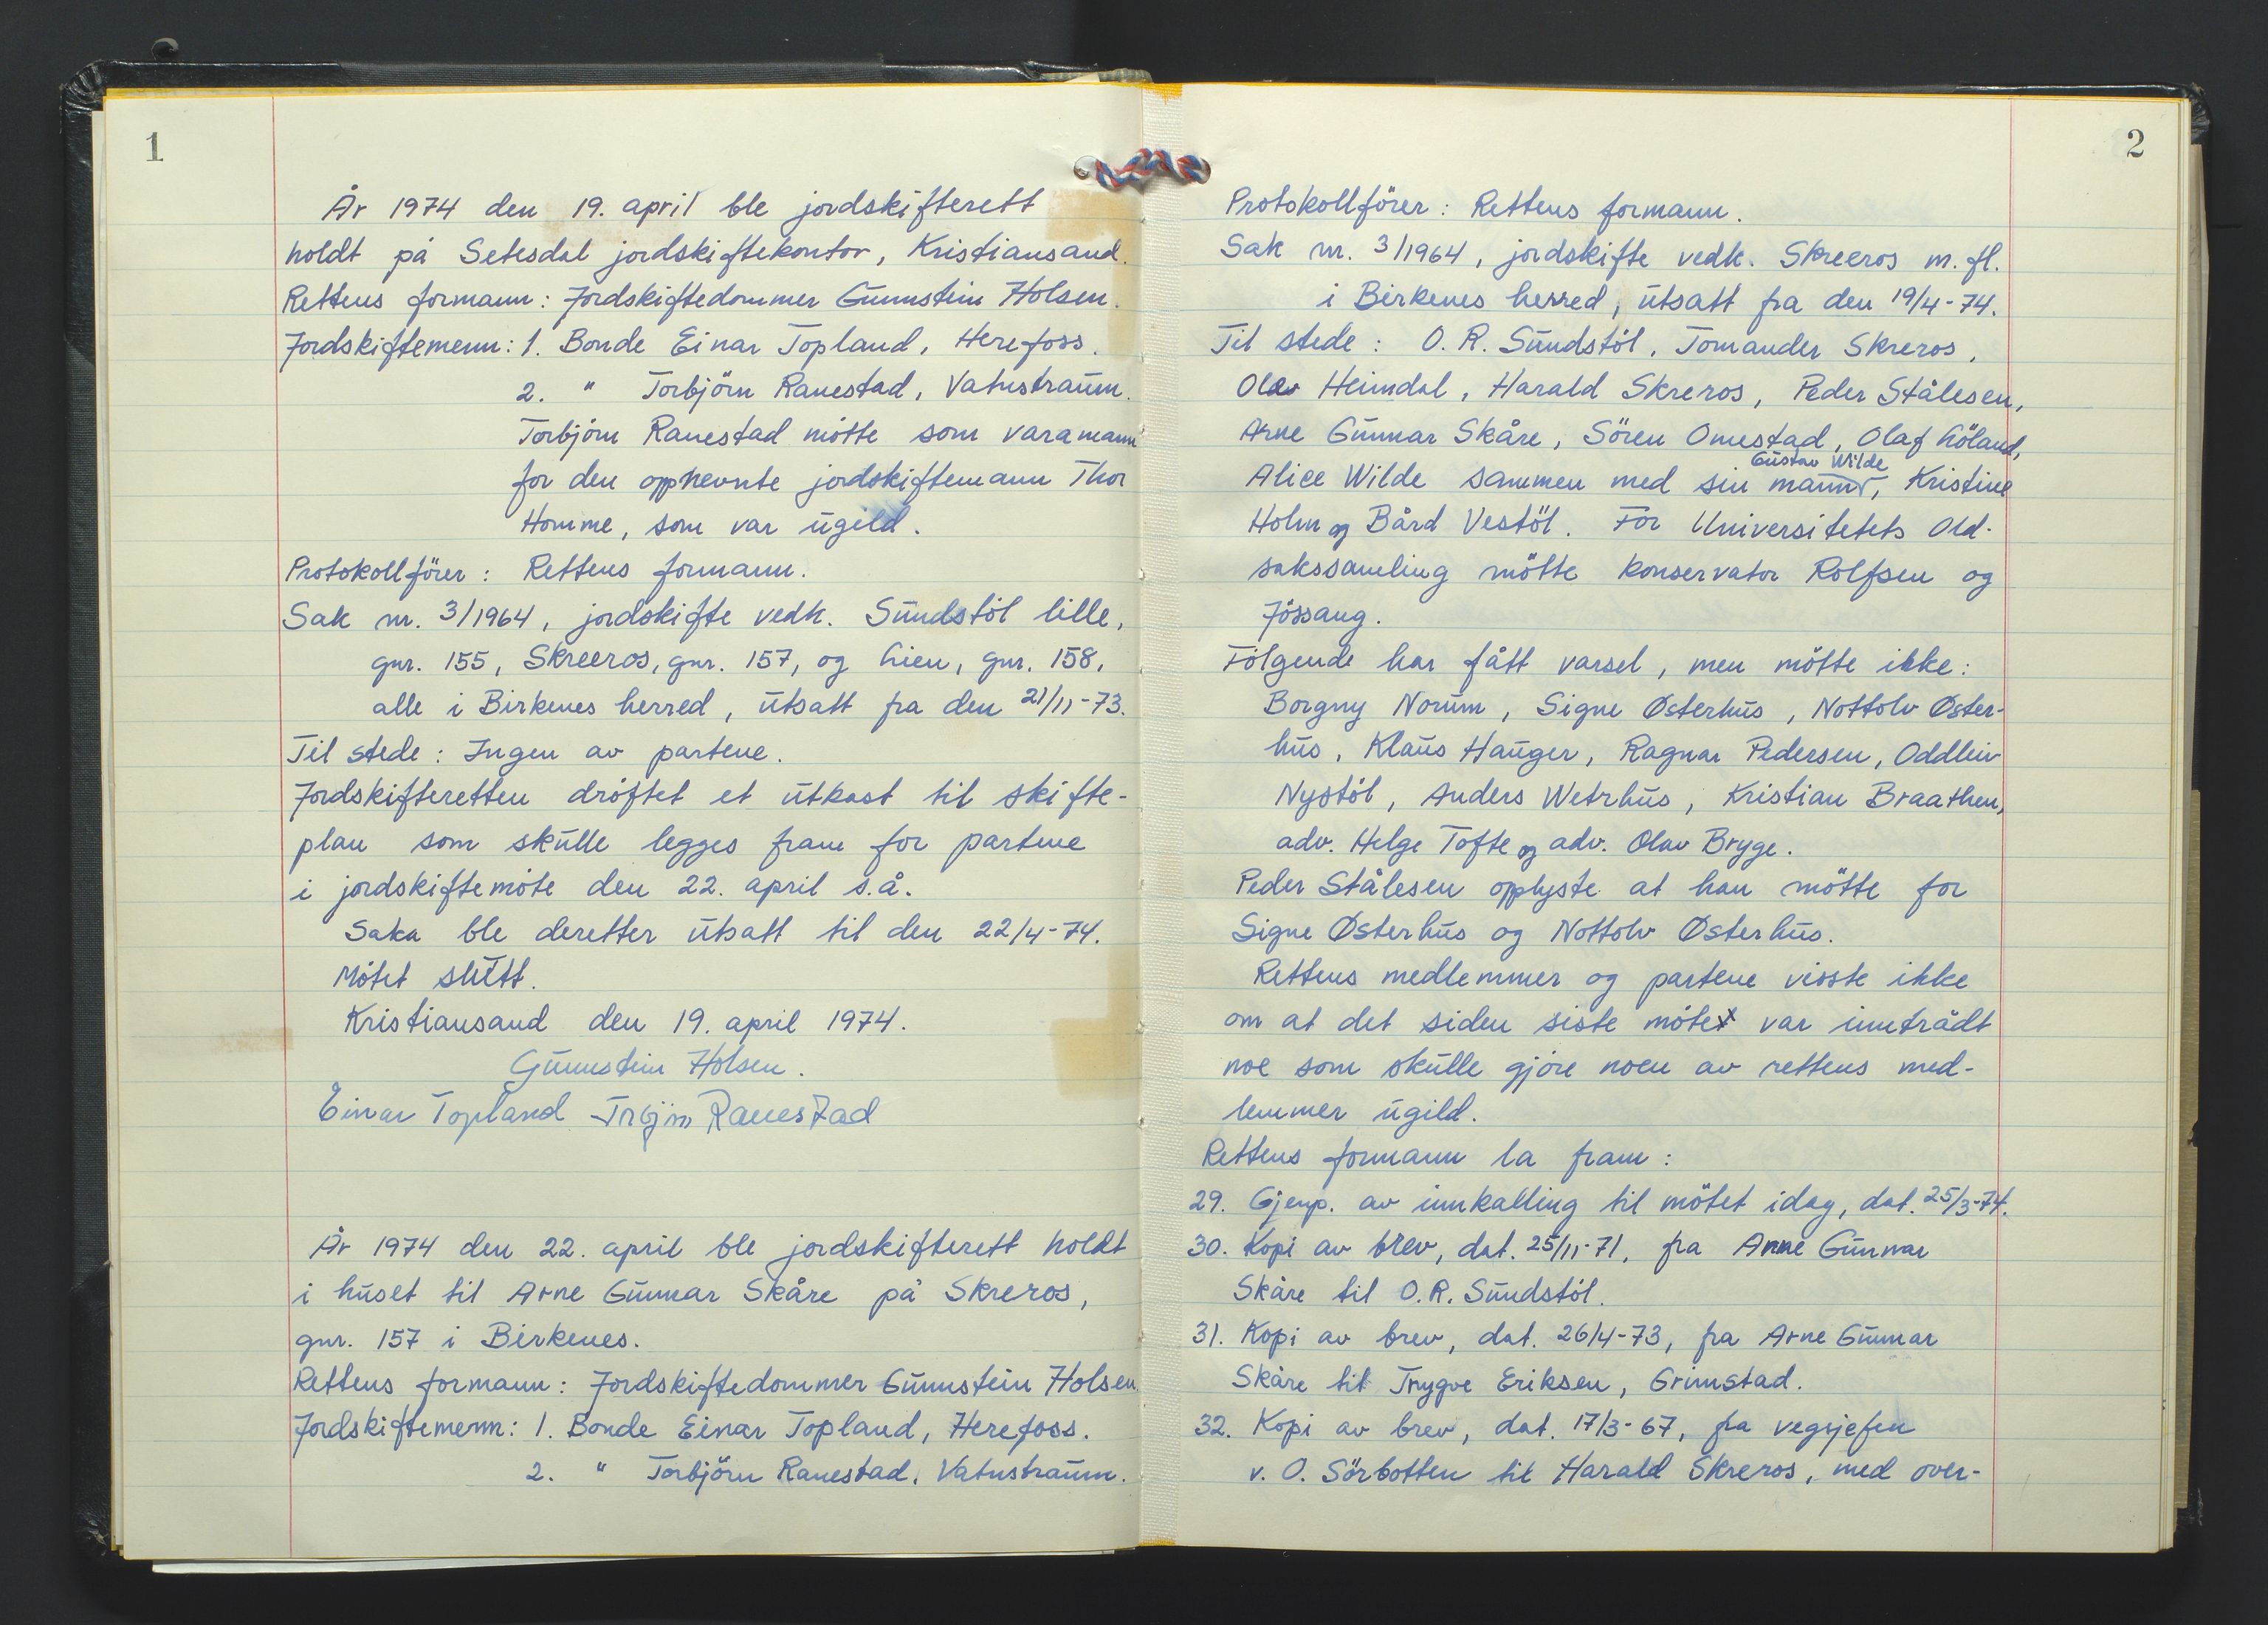 1
År 1974 den 19. april ble jordskifterett
holdt på Setesdal jordskiftekontor, Kristiansand.
Rettens formann: Jordskiftedommer Gunnstein Holsen.
Jordskiftemenn: 1. Bonde Einar Topland, Herefoss.
2. " Torbjörn Ranestad, Vatnstraum.
Torbjörn Ranestad mötte som varamann
for den oppnevnte jordskiftemann Thor
Homme, som var ugild.
Protokollförer: Rettens formann.
Sak nr. 3/1964, jordskifte vedk. Sundstöl lille,
gnr. 155, Skreeros, gnr. 157, og Lien, gnr. 158,
alle i Birkenes herred, utsatt fra den 21/11-73.
Til stede: Ingen av partene.
Jordskifteretten dröftet et utkast til skifte-
plan som skulle legges fram for partene
i jordskiftemöte den 22. april s.å.
Saka ble deretter utsatt til den 22/4-74.
Mötet slutt.
Kristiansand den 19. april 1974.
Gunnstein Holsen.
Einar Topland Torbjörn Ranestad
År 1974 den 22. april ble jordskifterett holdt
i huset til Arne Gunnar Skåre på Skreros,
gnr. 157 i Birkenes.
Rettens formann: Jordskiftedommer Gunnstein Holsen
Jordskiftemenn: 1. Bonde Einar Topland, Herefoss.
2. " Torbjörn Ranestad, Vatnstraum.
2
Protokollförer: Rettens formann.
Sak nr. 3/1964, jordskifte vedk. Skreeros m. fl.
i Birkenes herred, utsatt fra den 19/4-74.
Til stede: O. R. Sundstöl, Tomander Skreros,
Olav Heimdal, Harald Skreros, Peder Stålesen,
Arne Gunnar Skåre, Sören Omestad, Olaf Löland,
Gustav Wilde
Alice Wilde sammen med sin mann, Kristine
Holm og Bård Vestöl. For Universitetets Old-
sakssamling mötte konservator Rolfsen og
Jössang.
Fölgende har fått varsel, men mötte ikke:
Borgny Norum, Signe Østerhus, Nottolv Øster-
hus, Klaus Hauger, Ragnar Pedersen, Oddleiv
Nystöl, Anders Wetrhus, Kristian Braathen,
adv. Helge Tofte og adv. Olav Bryge.
Peder Stålesen opplyste at han mötte for
Signe Østerhus og Nottolv Østerhus.
Rettens medlemmer og partene visste ikke
om at det siden siste möte var inntrådt
noe som skulle gjöre noen av rettens med-
lemmer ugild.
Rettens formann la fram:
29. Gjenp. av innkalling til mötet idag, dat. 25/3-74.
30. Kopi av brev, dat. 25/11-71, fra Arne Gunnar
Skåre til O. R. Sundstöl.
31. Kopi av brev, dat. 26/4-73, fra Arne Gunnar
Skåre til Trygve Eriksen, Grimstad.
32. Kopi av brev, dat. 17/3-67, fra vegsjefen
v. O. Sörbotten til Harald Skreros, med over-